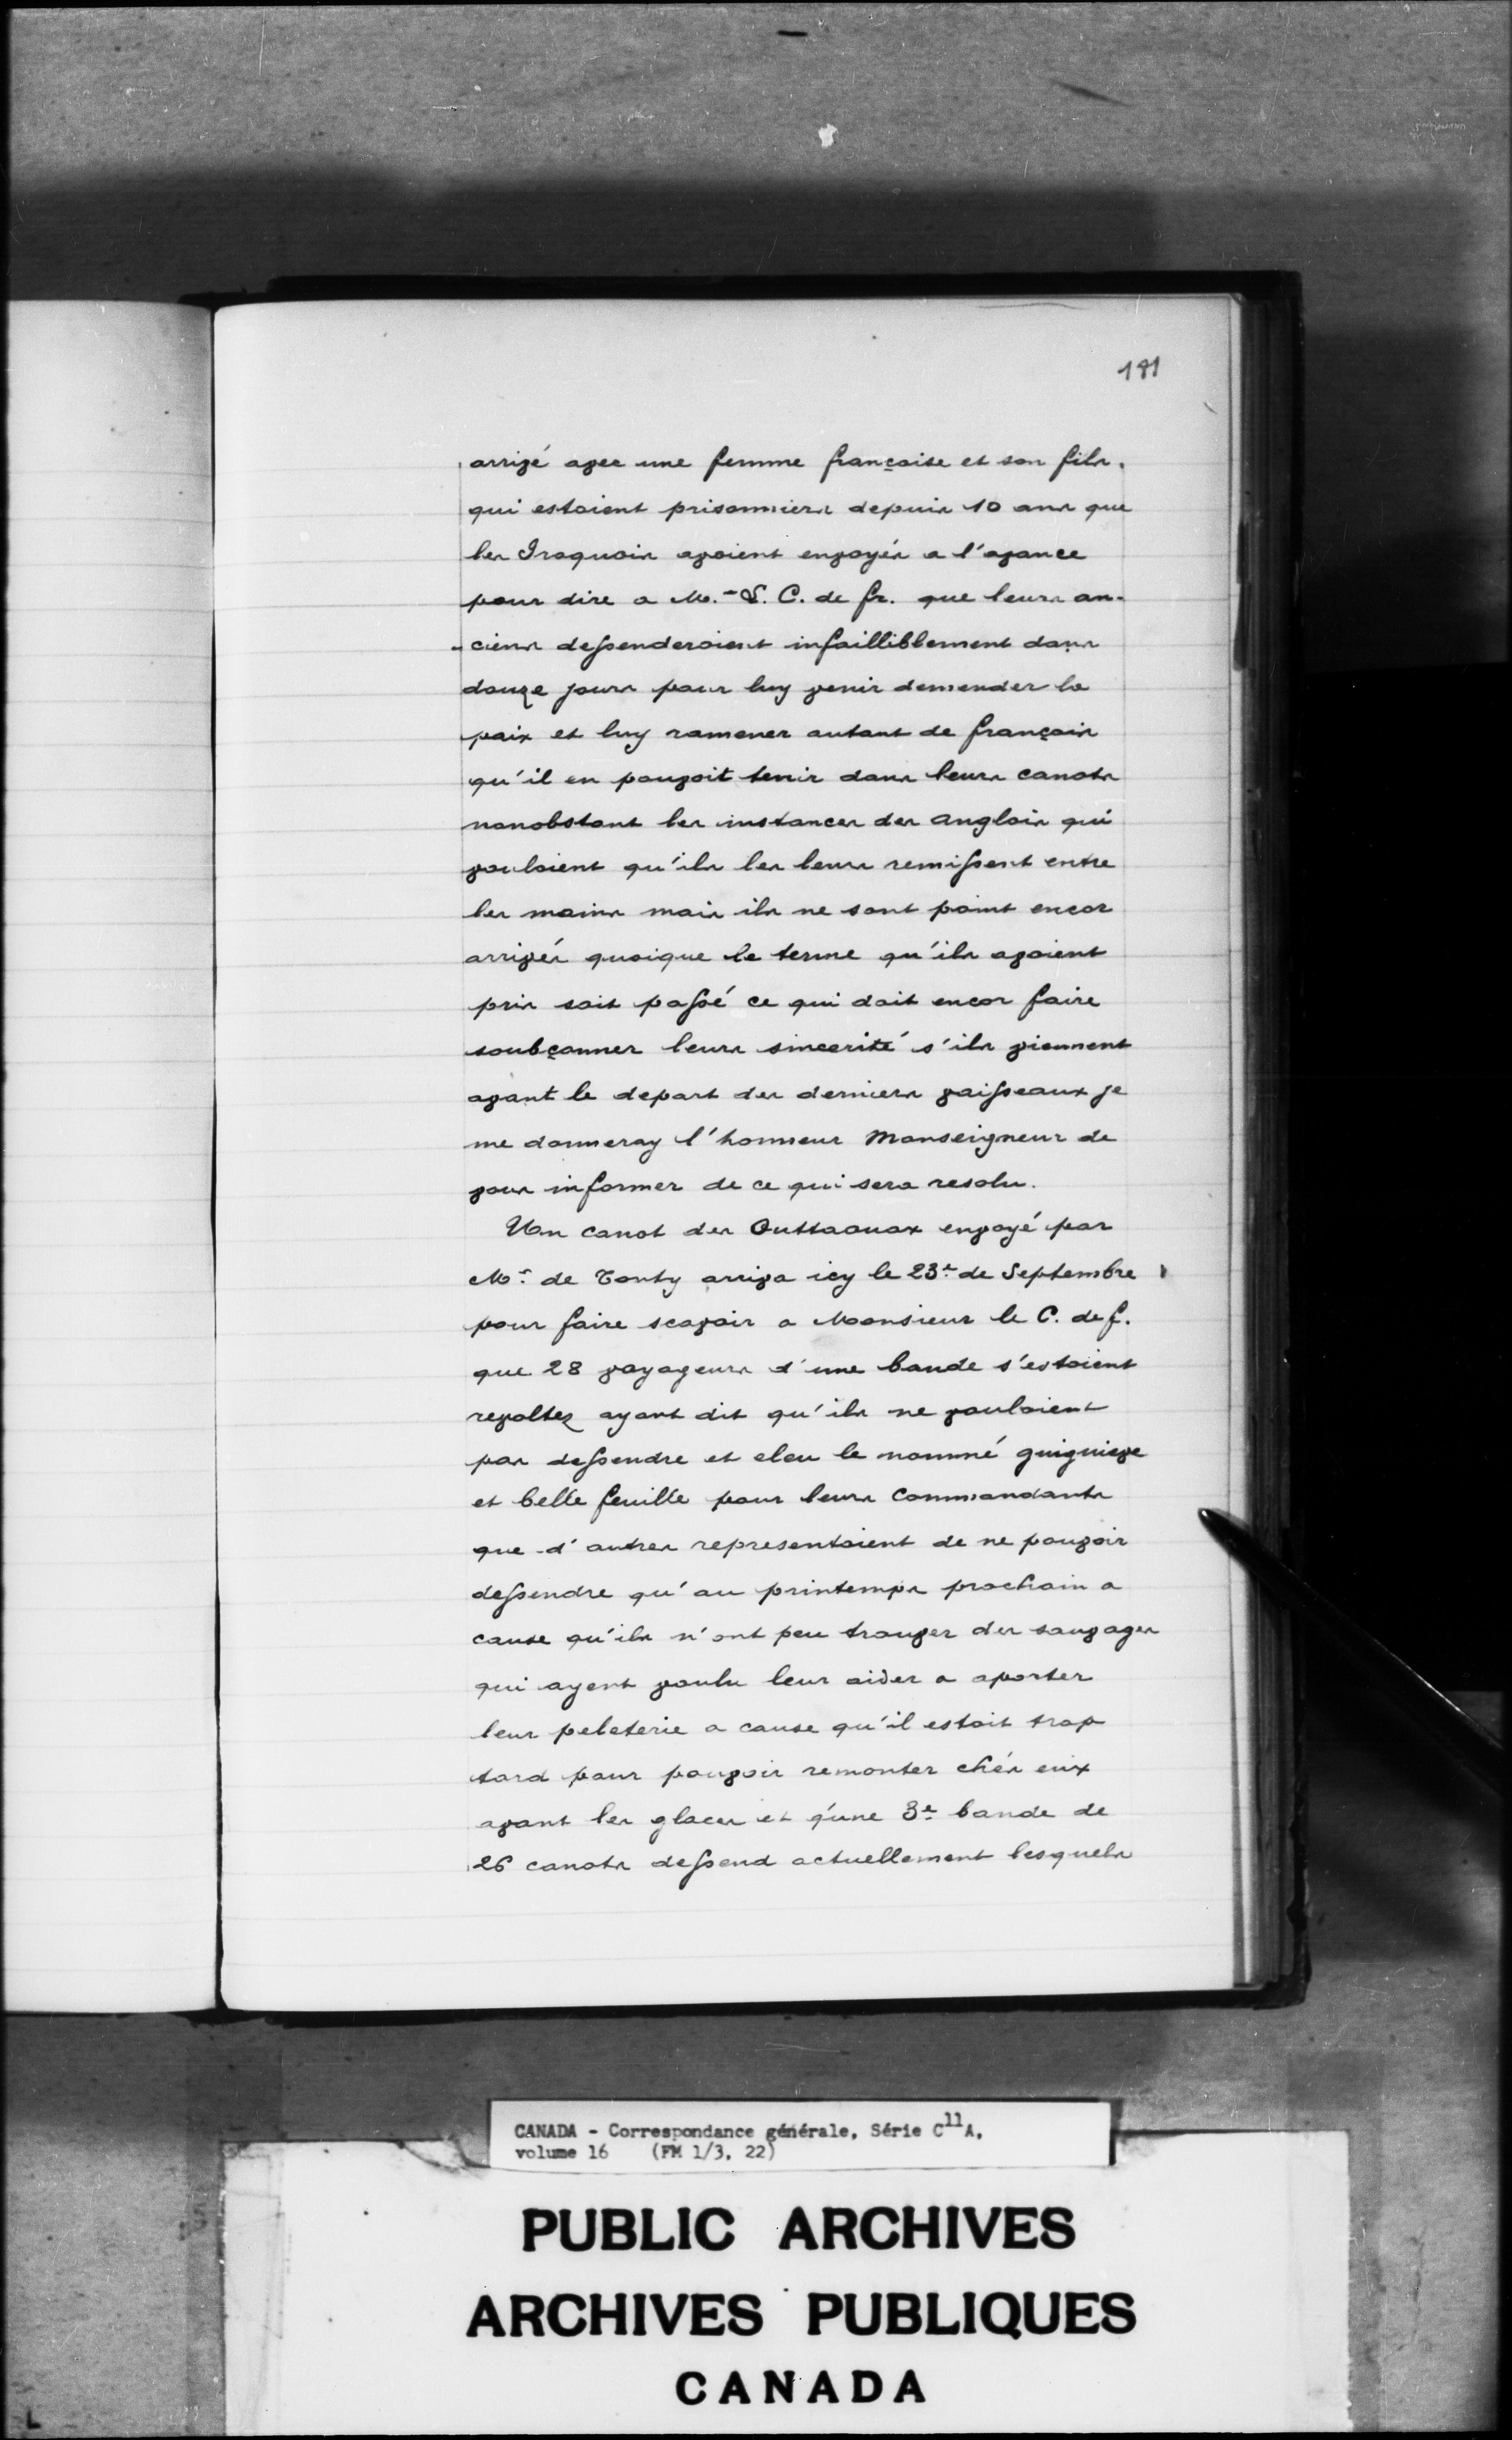 191
arrivé avec une femme françoise et son fils.
qui estoient prisonniers depuis 10 ans que
les Iroquois avoient envoyés a l'avance
pour dire a M. - L. C. de fr. que leurs an-
-ciens dessenderoient infailliblement dans
douze jours pour luy venir demender la
paix et luy ramener autant de françois
qu'il en pouvoit tenir dans leurs canots
nonobstant les instances des anglois qui
vouloient qu'ils les leurs remissent entre
les mains mais ils ne sont point encor
arrivés quoique le terme qu'ils avoient
pris soit passé ce qui doit encor faire
soubçonner leurs sincerité s'ils viennent
avant le depart des derniers vaisseaux je
me donneray l'honneur Monseigneur de
vous informer de ce qui sera resolu.
Un canot des Outtaouax envoyé par
Mr. de Tonty arriva icy le 23e. de Septembre
pour faire scavoir a Monsieur le C. de f.
que 28 voyageurs d'une bande s'estoient
revoltez ayant dit qu'ils ne vouloient
pas dessendre et eleu le nommé guignieve
et belle feuille pour leurs Commandants
que d'autres representoient de ne pouvoir
dessendre qu'au printemps prochain a
cause qu'ils n'ont peu trouver des sauvages
qui ayent voulu leur aider a aporter
leur peleterie a cause qu'il estoit trop
tard pour pouvoir remonter chés eux
avant les glaces et q'une 3e. bande de
26 canots dessend actuellement lesquels
CANADA - Correspondance générale, Série C11A,
volume 16 (FM 1/3, 22)
PUBLIC ARCHIVES
ARCHIVES PUBLIQUES
CANADA